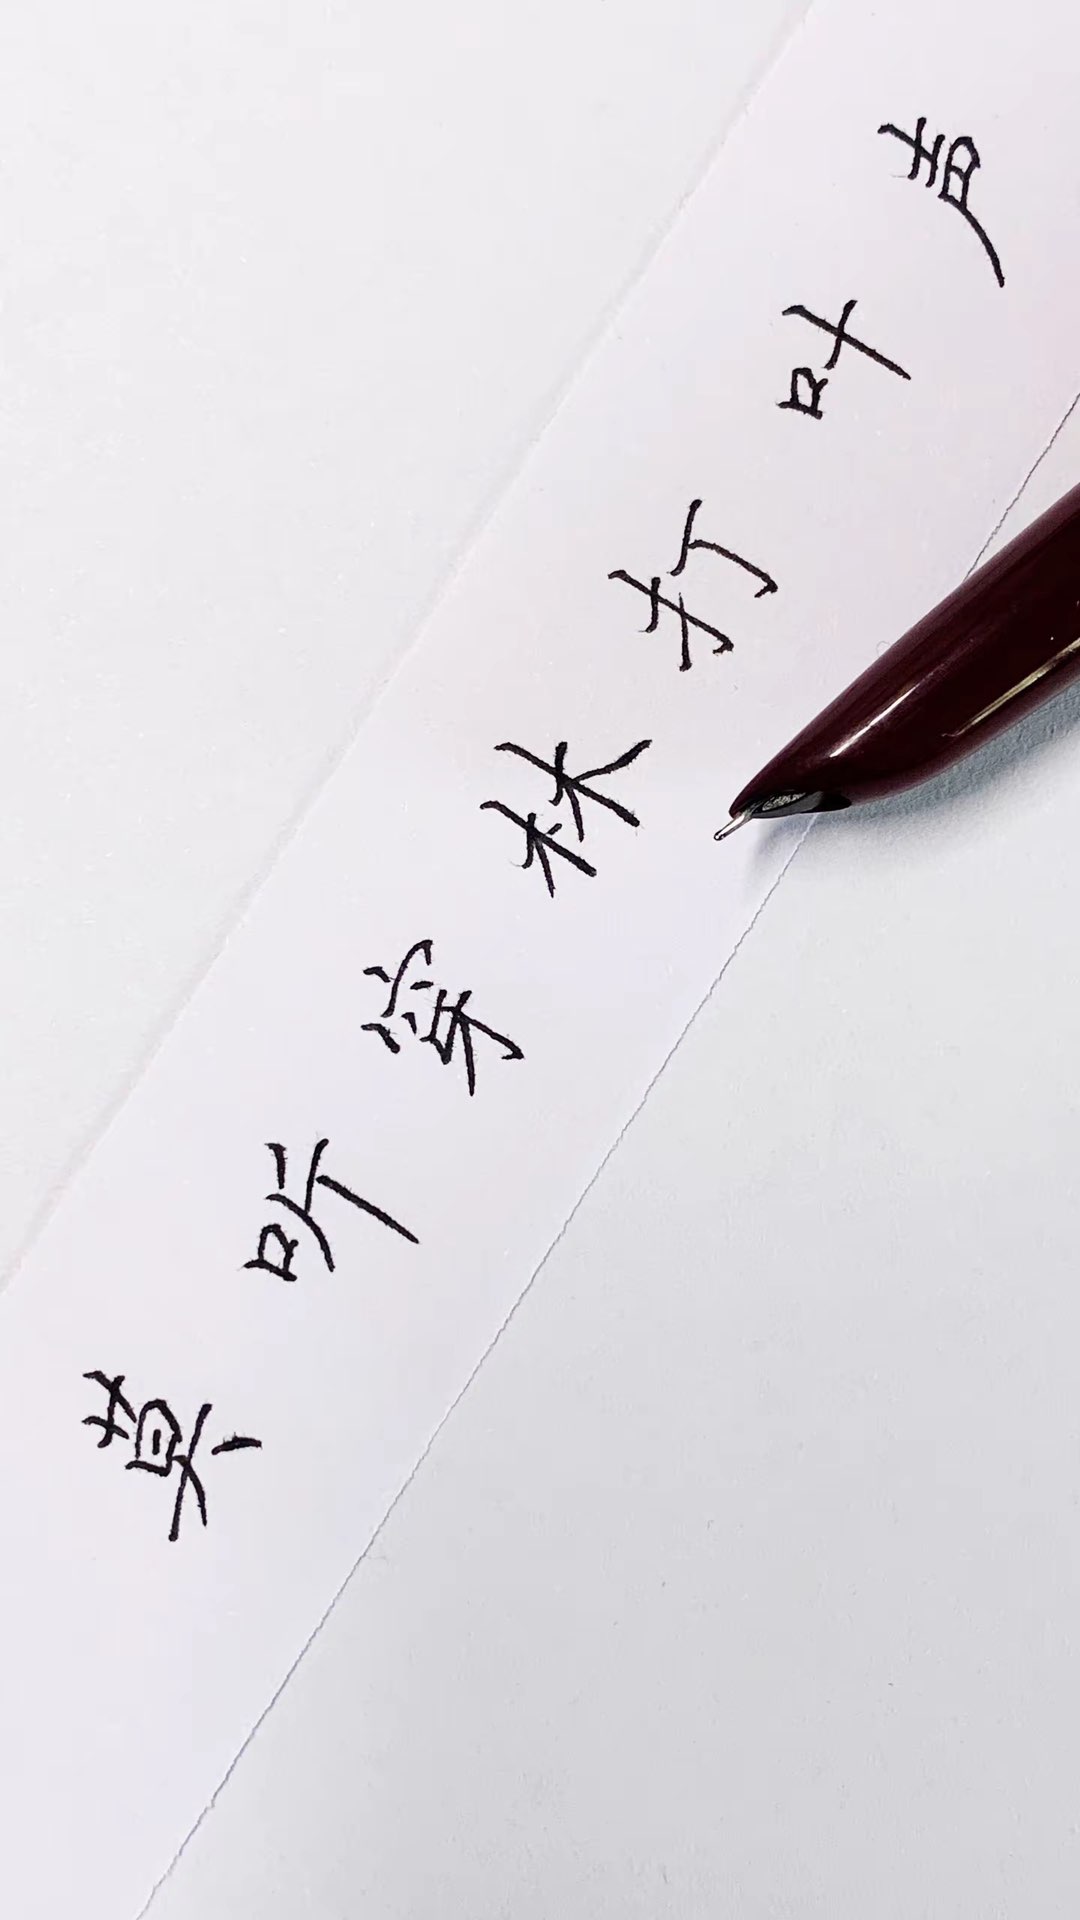 莫听穿林打叶声